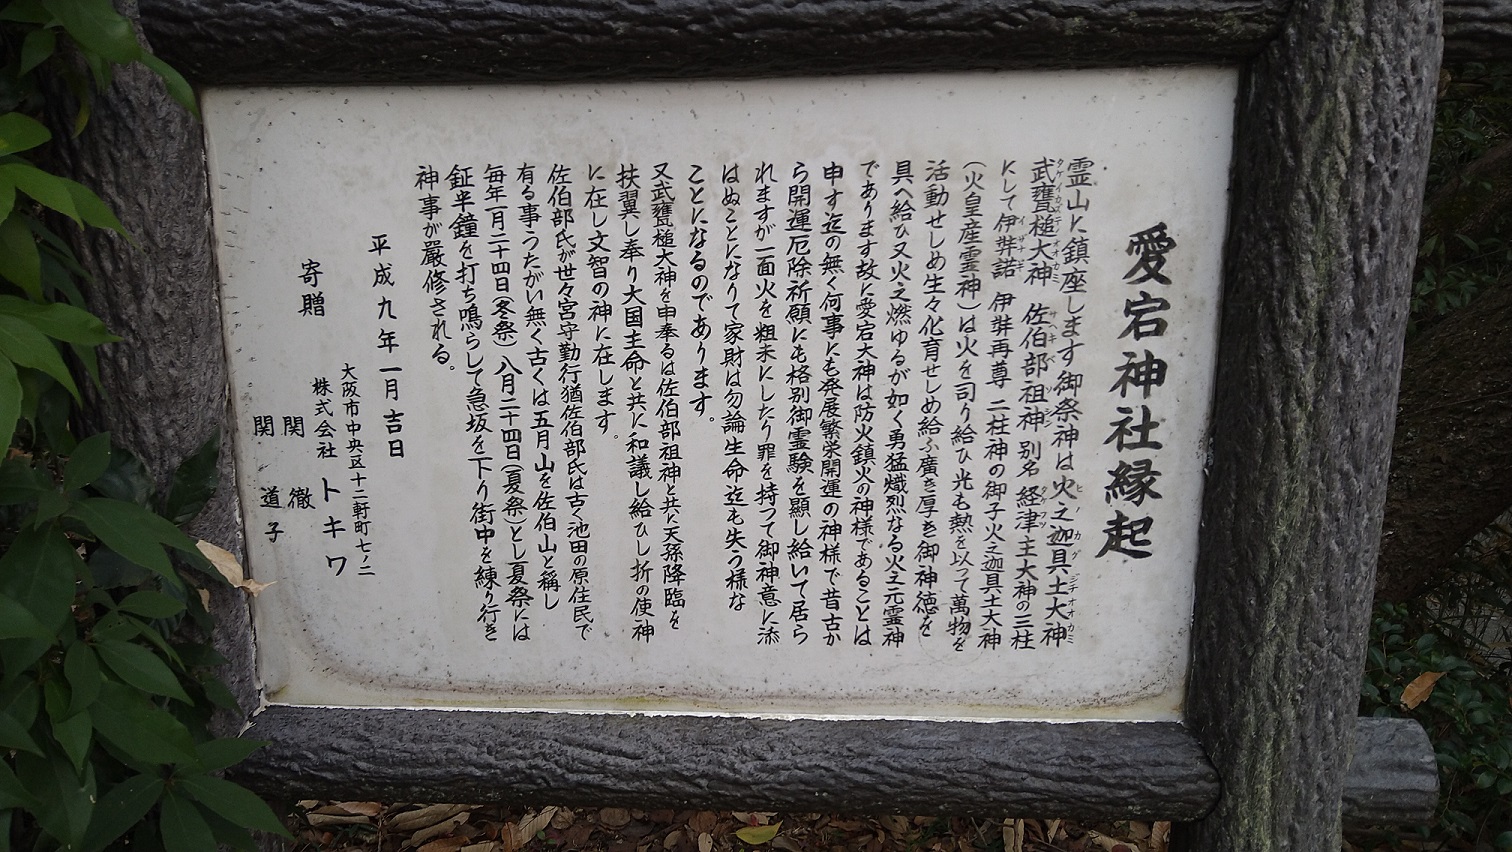 愛宕神社縁起
霊山に鎮座します御祭神は火之迦具土大神
武甕槌大神 佐伯部祖神 別名 経津主大神の三柱
にして伊弉諾 伊弉再尊 二柱神の御子火之迦具土大神
(火皇産霊神)は火を司り給ひ光も熱を以って萬物を
活動せしめ生々化育せしめ給ふ廣き厚き御神徳を
具へ給ひ又火之燃ゆるが如く勇猛熾烈なる火之元霊神
であります故に愛宕大神は防火鎮火の神様であることは
申す迄の無く何事にも発展繁栄開運の神様で昔古か
ら開運厄除祈願にも格別御霊験を顕し給いて居ら
れますが一面火を粗末にしたり罪を持って御神意に添
はぬことになりて家財は勿論生命迄も失う様な
ことになるのであります。
又武甕槌大神を申奉るは佐伯部祖神と共に天孫降臨を
扶翼し奉り大国主命と共に和議し給ひし折の使神
に在し文智の神に在します。
佐伯部氏が世々宮守勤行猶佐伯部氏は古く池田の原住民で
有る事うたがい無く古くは五月山を佐伯山と稱し
毎年一月二十四日(冬祭)八月二十四日(夏祭)とし夏祭には
鉦半鐘を打ち鳴らして急坂を下り街中を練り行き
神事が厳修される。
平成九年一月吉日
大阪市中央区十二軒町七ノ二
寄贈 株式会社 トキワ
関 徹
関 道子